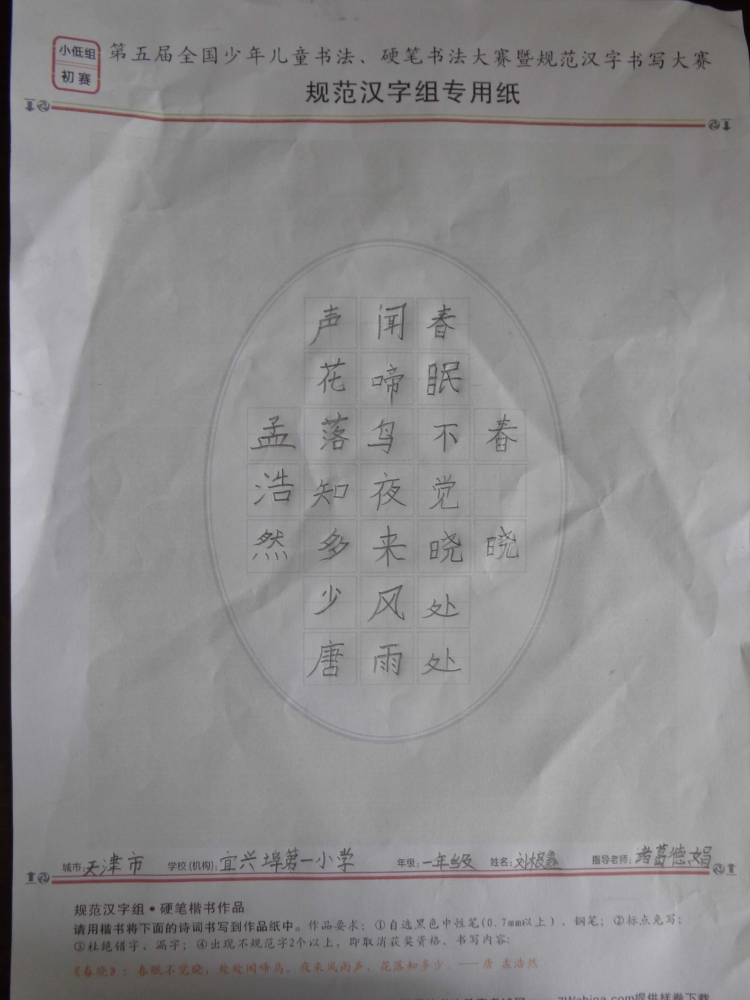 小低组
初赛
第五届全国少年儿童书法、硬笔书法大赛暨规范汉字书写大赛
规范汉字组专用纸
春晓
春眠不觉晓处处
闻啼鸟夜来风雨
声花落知多少唐
孟浩然
城市:天津市 学校(机构):宜兴埠第一小学 年级:一年级 姓名:刘 指导老师:诸葛德娟
规范汉字组·硬笔楷书作品
请用楷书将下面的诗词书写到作品纸中。作品要求:①自选黑色中性笔(0.7mm以上)、钢笔;②标点免写;
③杜绝错字、漏字;④出现不规范字2个以上,即取消获奖资格。书写内容:
《春晓》:春眠不觉晓,处处闻啼鸟。夜来风雨声,花落知多少。——唐 孟浩然